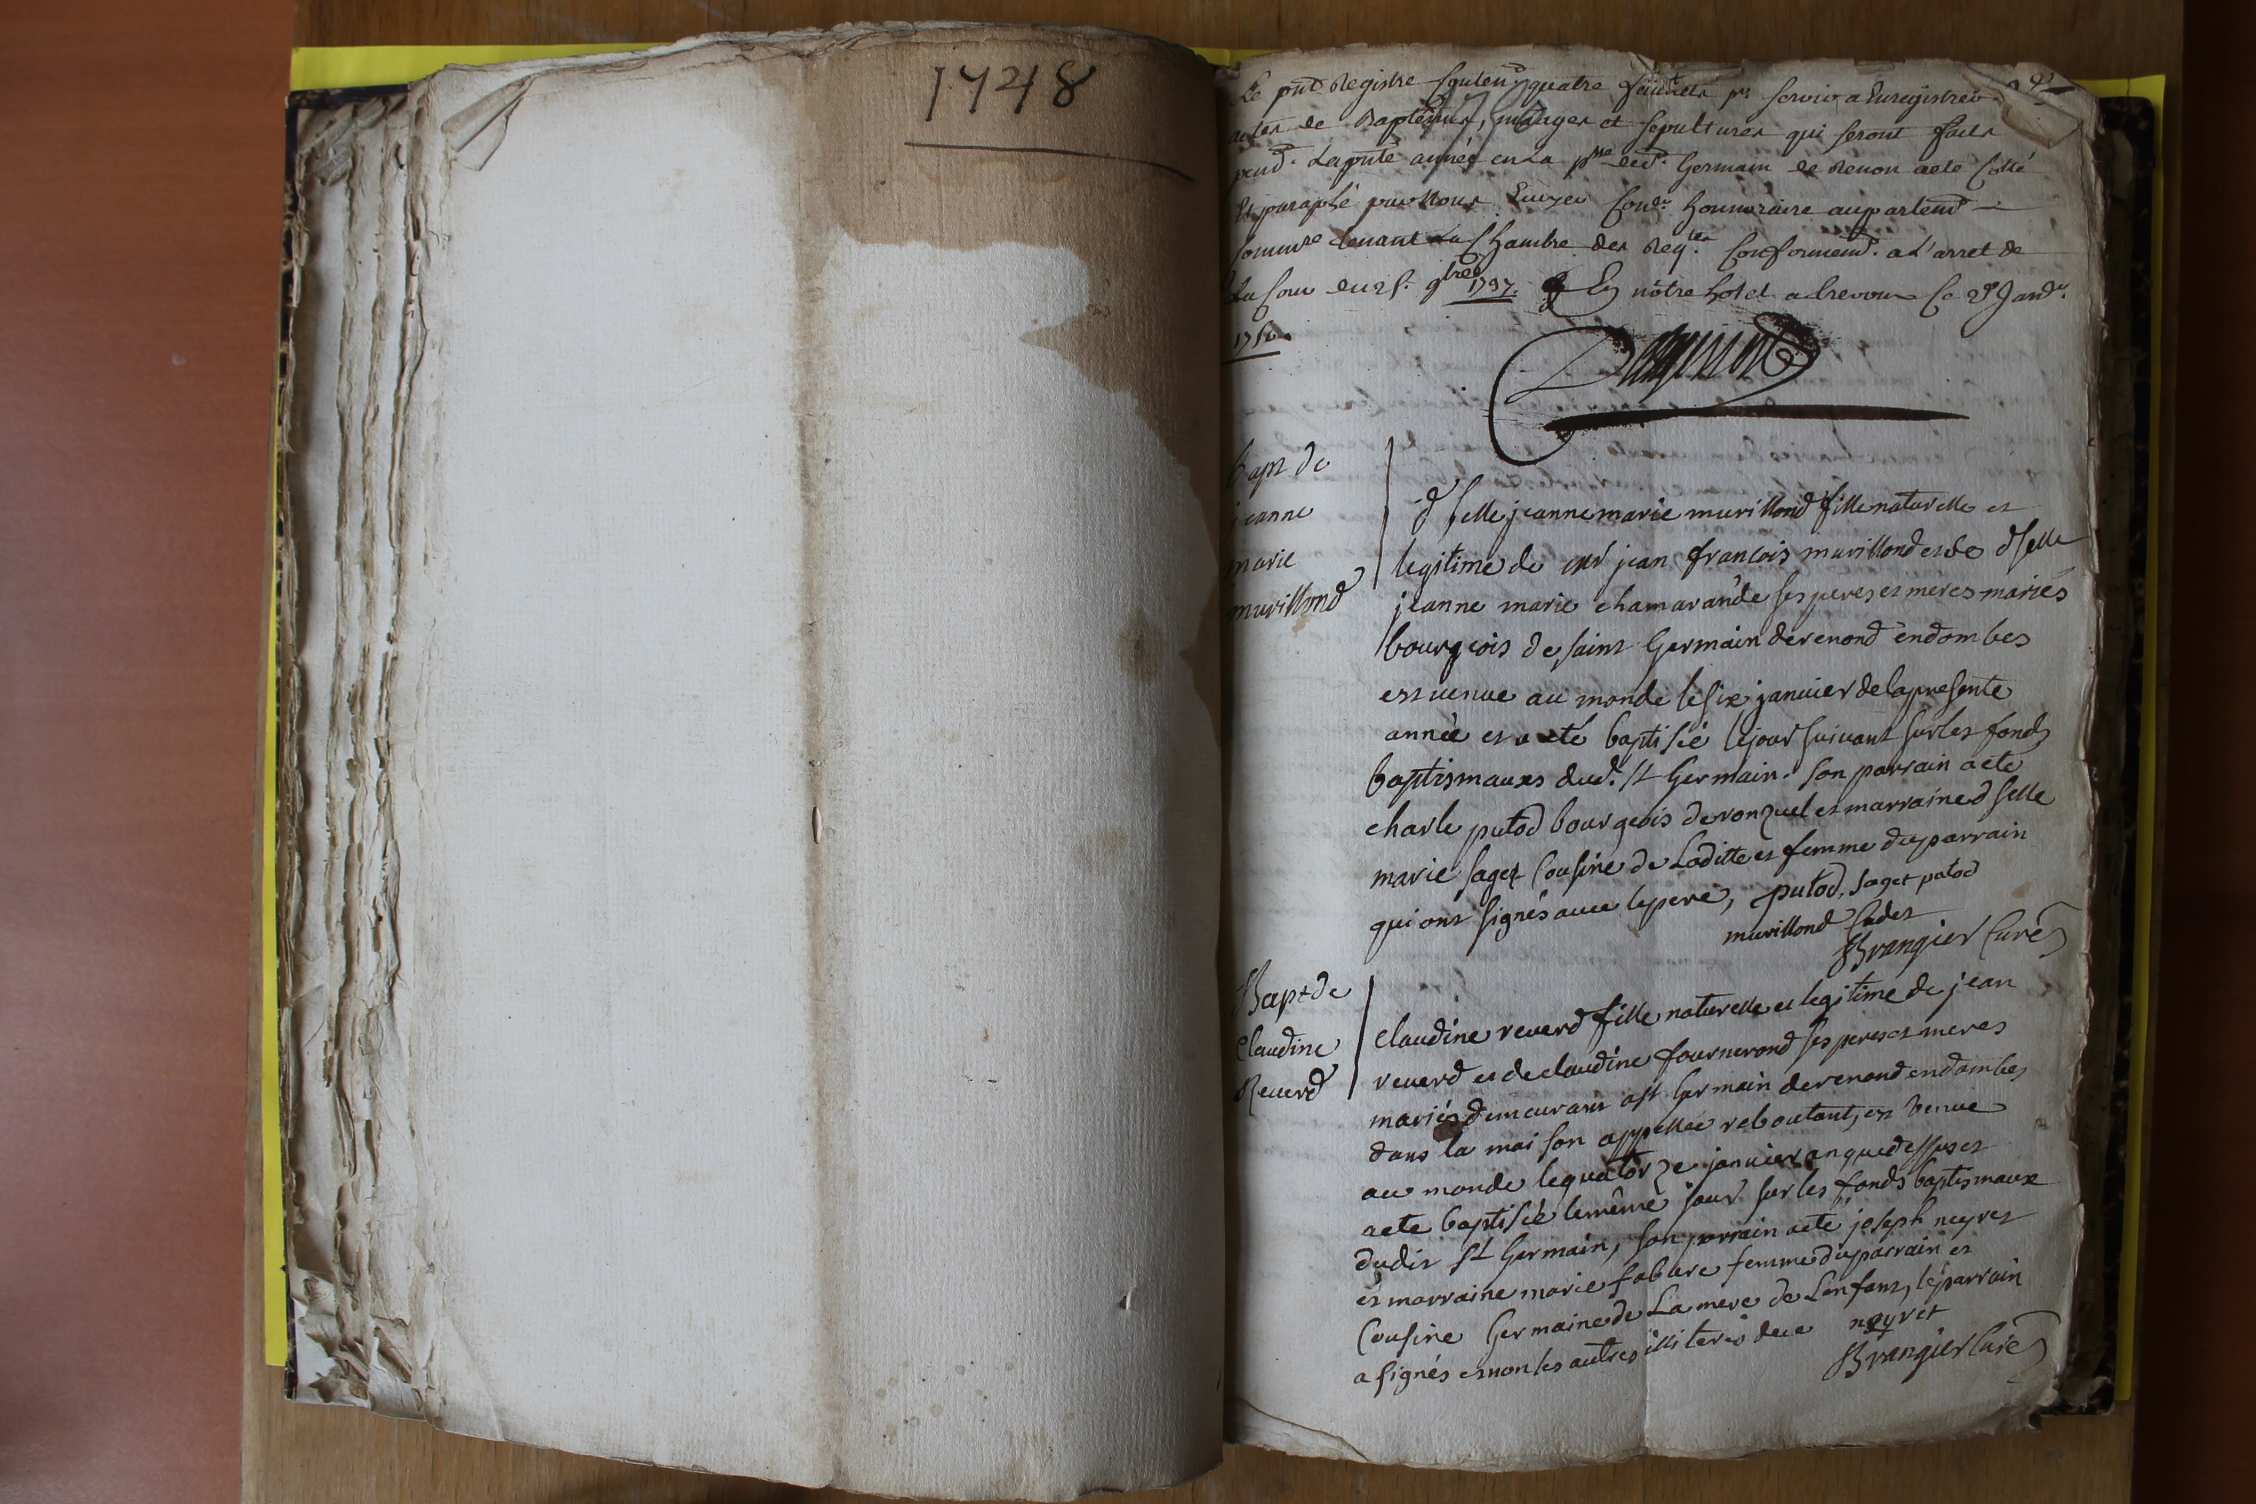 1748
Le pnt Registre Conten.t quatre feuillets pr. servir a Enregistrer
actes de Baptemes, mariages et sepultures qui seront faits
pend.t La pnte année en La psse de St. Germain de Renon a eté Cotté
Et paraphé par Nous Ecuyer Con.er honnoraire au parlem.t
tenant La Chambre des Req.tes Conformem.t a L'arret de
La Cour du 25. 9bre 1737. En nôtre hotel a Trevoux Ce Janv.er
bapt de
jeanne
marie
murillond
dselle jeanne marie murillond fille naturelle et
legitime de mr jean francois murillond et de dselle
jeanne marie chamarande ses peres et meres mariés
bourgeois de saint Germain de renond en dombes
est venue au monde le six janvier de la presente
année et a eté baptisée le jour suivant sur les fonds
baptismauxs dud. st Germain. son parrain a eté
charle putod bourgeois de ronzuel et marraine dselle
marie saget Cousine de Laditte et femme du parrain
qui ont signés avec le pere, putod. saget putod
murillond Cadet
Brangier Curé
Bapt de
Claudine
Reverd
claudine reverd fille naturelle et legitime de jean
reverd et de claudine fournerond ses peres et meres
mariés demeurant a st Germain de renond en dombes
dans la maison appellée reboutant, est venue
au monde le quatorze janvier an que dessus et
a eté baptisée le même jour sur les fonds baptismaux
dudit st Germain, son parrain a eté joseph neyret
et marraine marie fabare femme du parrain et
Cousine Germaine de La mere de Lenfant, le parrain
a signés et non les autres illiterés de ce neyret
Brangier Curé